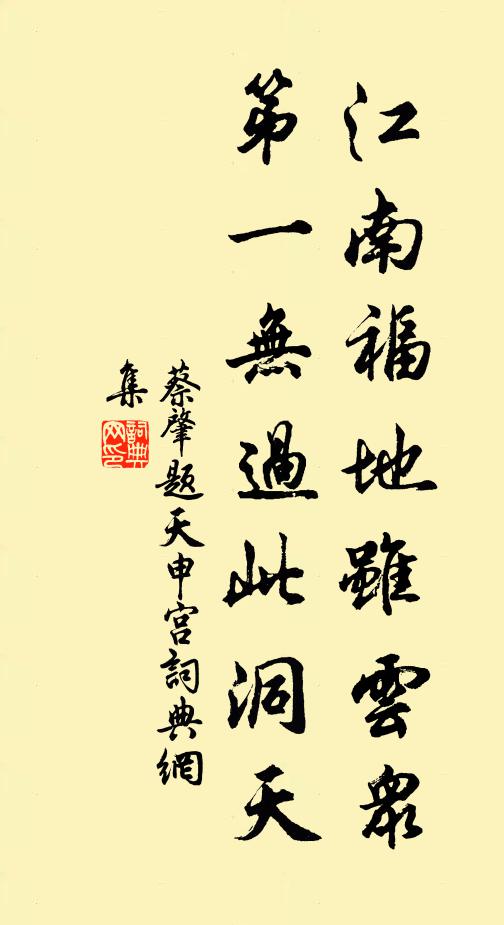 江南福地雖雲衆
第一無過此洞天
蔡肇題天申宮詞典網
集
詞典網印